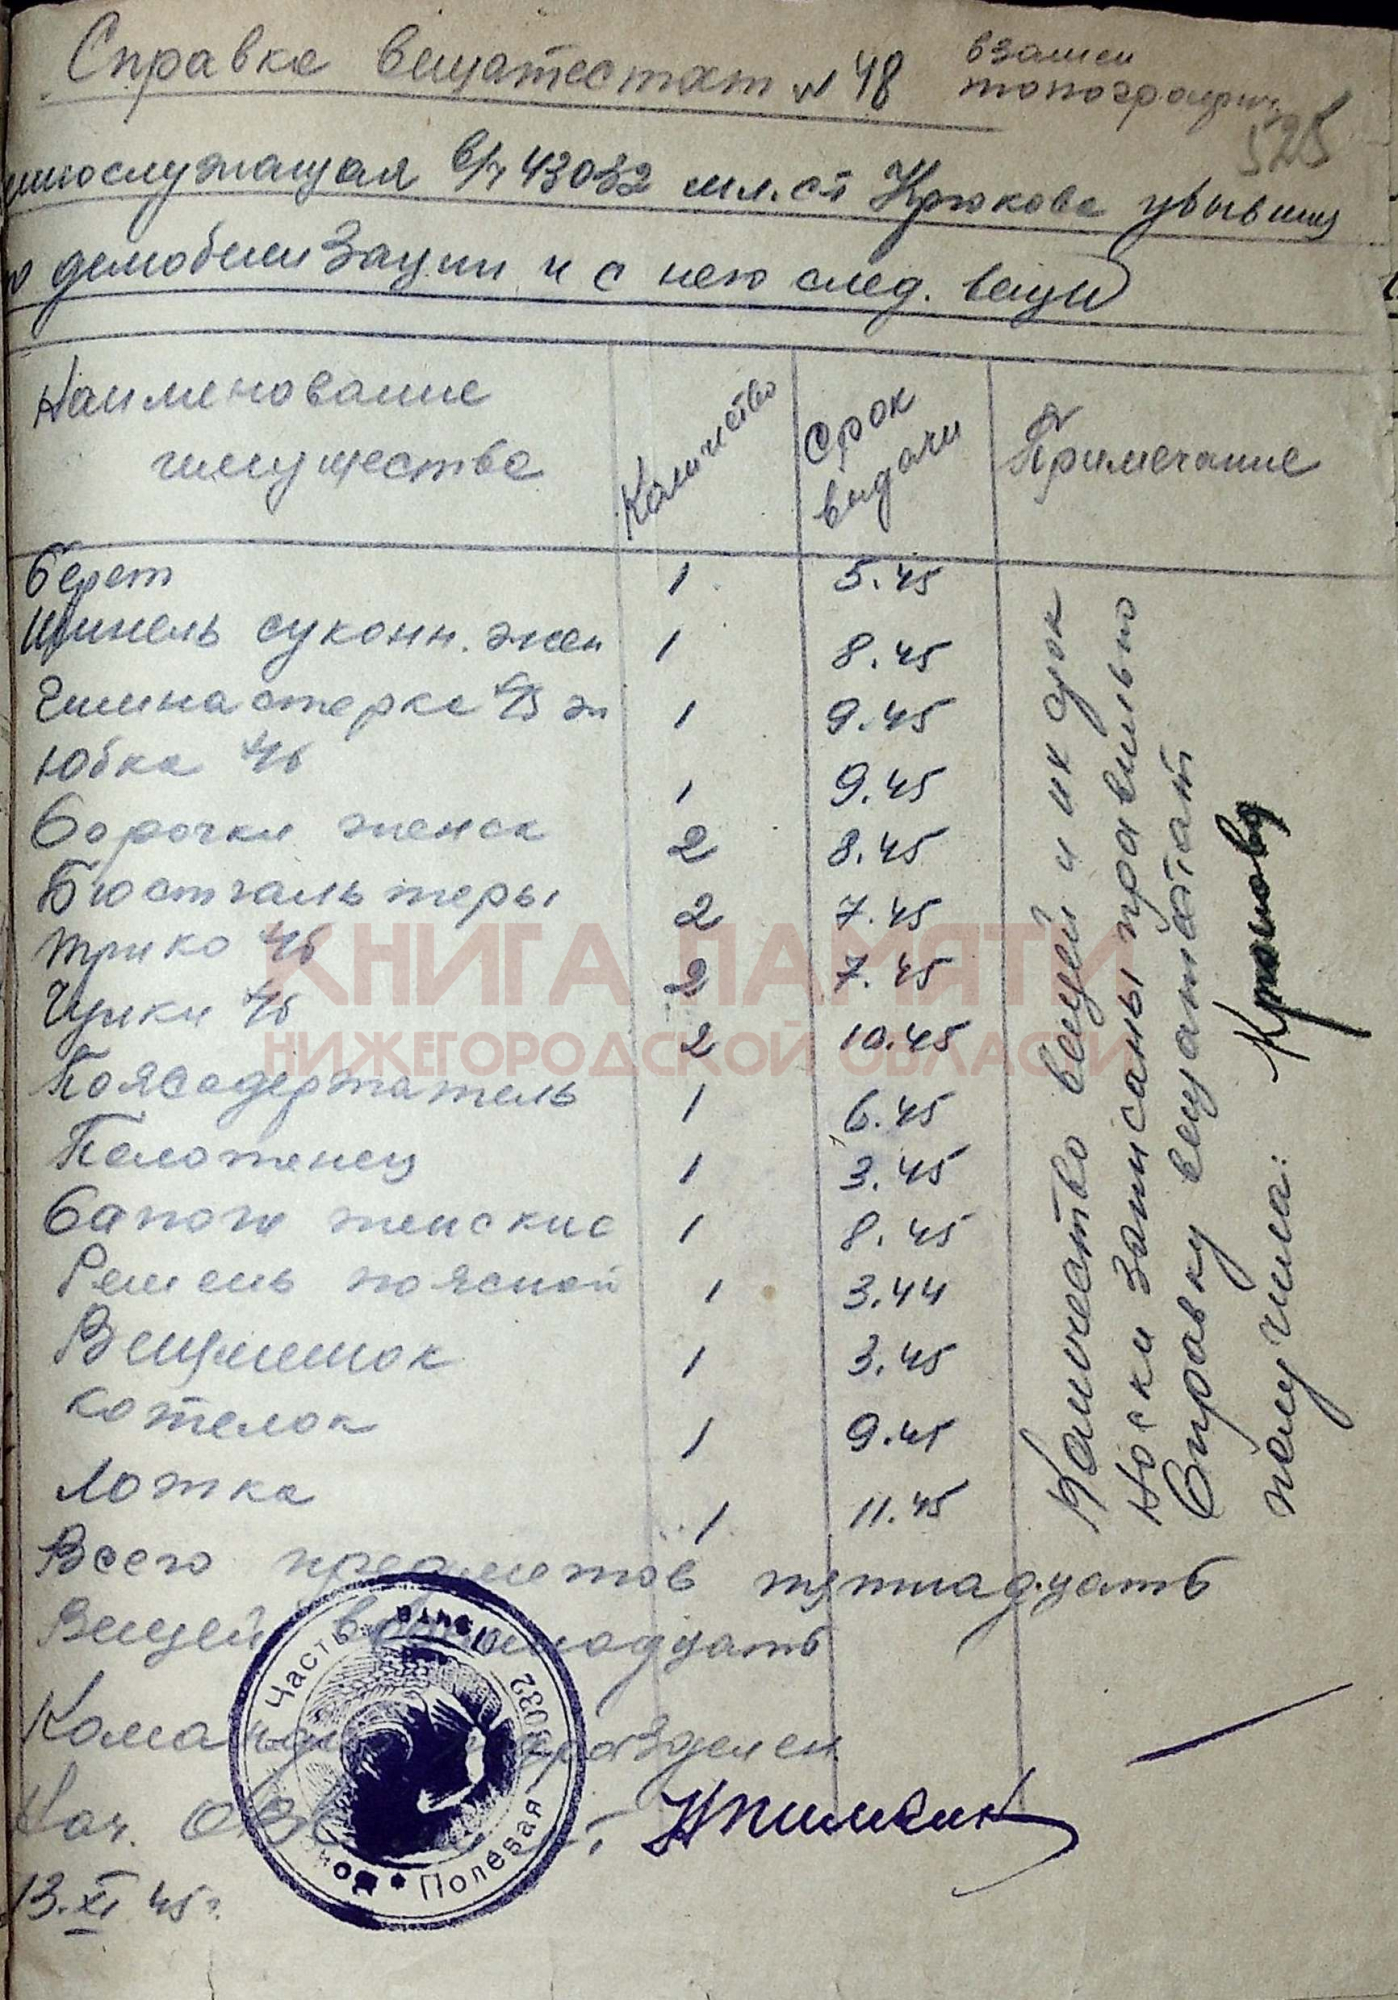 Справка вещатестат № 48
взамен
типография
525
служащая в/ч 43032 мл. с-т Крюкова убывший
демобилизации и с нею след. вещи
Наименование имущества Количество Срок выдачи Примечание
Берет 1 5.45
Шинель суконн. жен 1 8.45
Гимнастерка х/б ж 1 9.45
Юбка х/б 1 9.45
Сорочки женск 2 8.45
Бюстгальтеры 2 7.45
Трико х/б 2 7.45
Чулки х/б 2 10.45
Поясодержатель 1 6.45
Полотенец 1 3.45
Сапоги женские 1 8.45
Ремень поясной 1 3.44
Вещмешок 1 3.45
Котелок 1 9.45
Ложка 1 11.45
Количество вещей и их срок
носки записаны правильно
Справку вещатотат
получила: Крюкова
Всего предметов пятнадцать
Вещей
Нач. ОВС
13.XI 45г.
Часть
Полевая 43032
КНИГА ПАМЯТИ
НИЖЕГОРОДСКОЙ ОБЛАСТИ